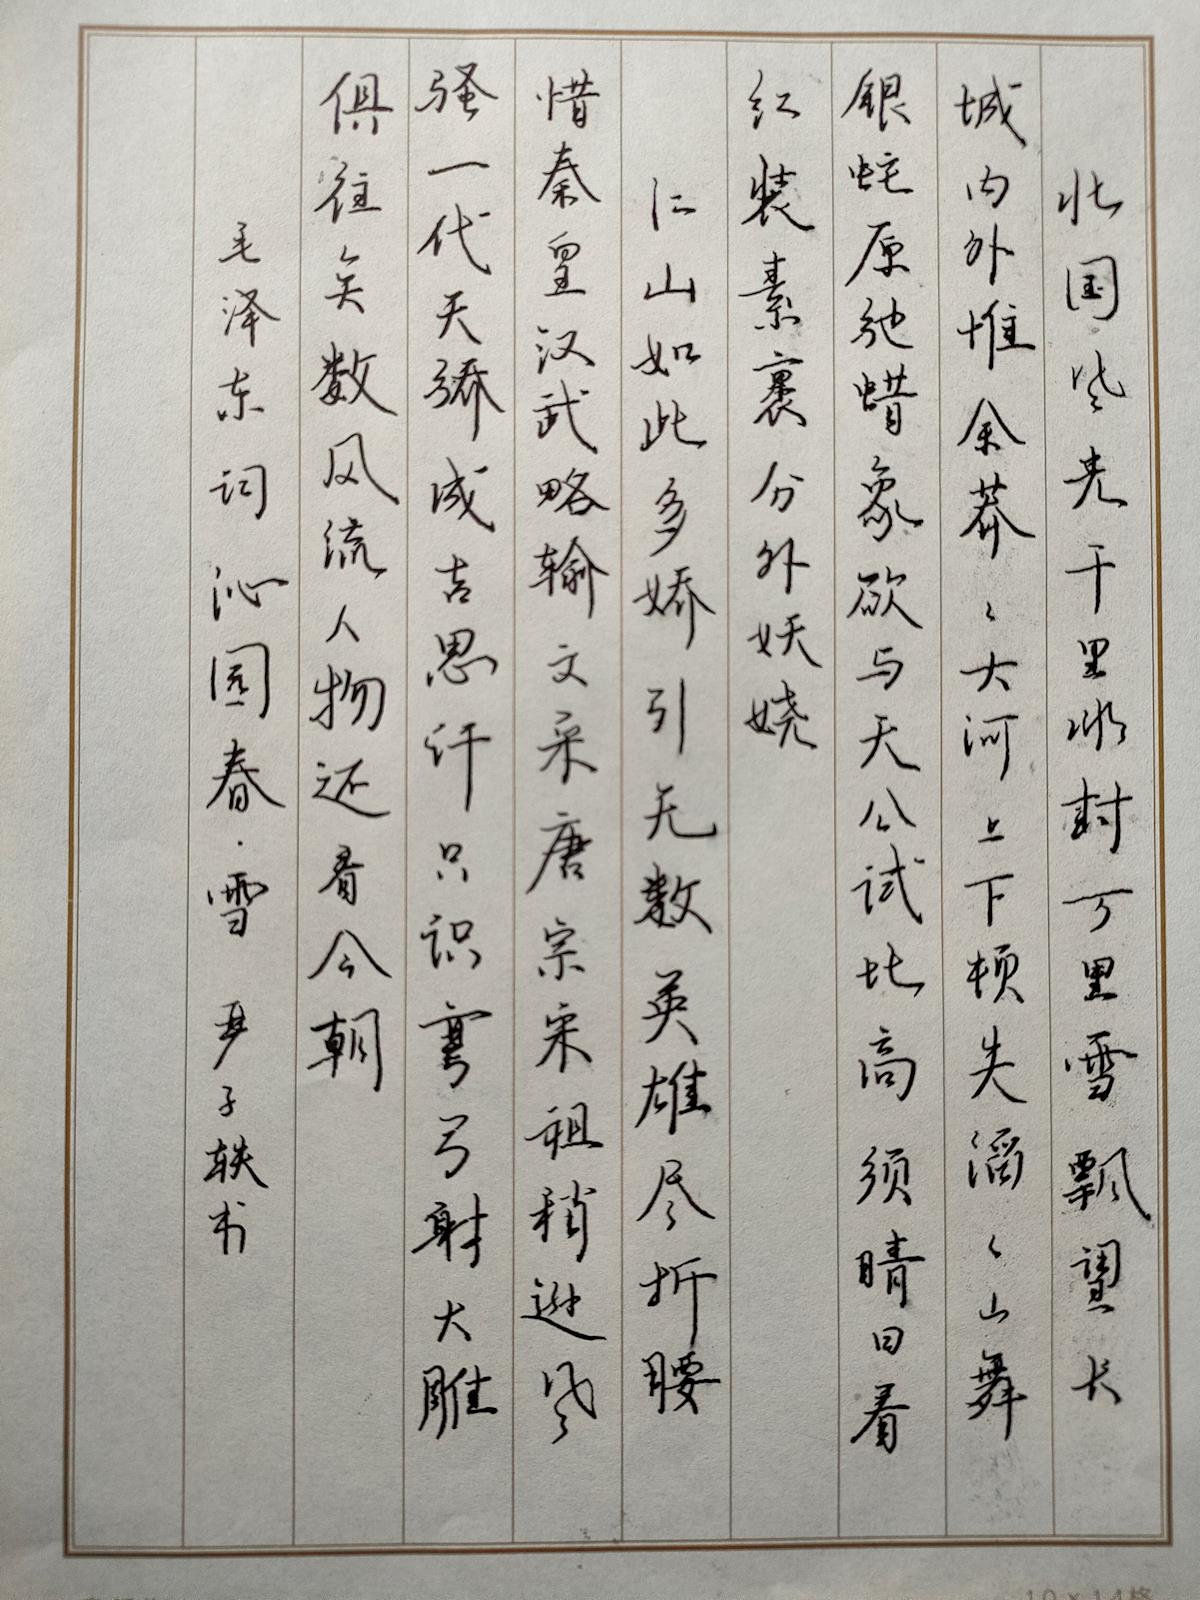 北国风光千里冰封万里雪飘望长
城内外惟余莽々大河上下顿失滔々山舞
銀蛇原驰蜡象欲与天公试比高须晴日看
红装素裹分外妖娆
江山如此多娇引无数英雄尽折腰
惜秦皇汉武略输文采唐宗宋祖稍逊风
骚一代天骄成吉思汗只识弯弓射大雕
俱往矣数风流人物还看今朝
毛泽东词沁园春·雪 尹子轶书
10×14格